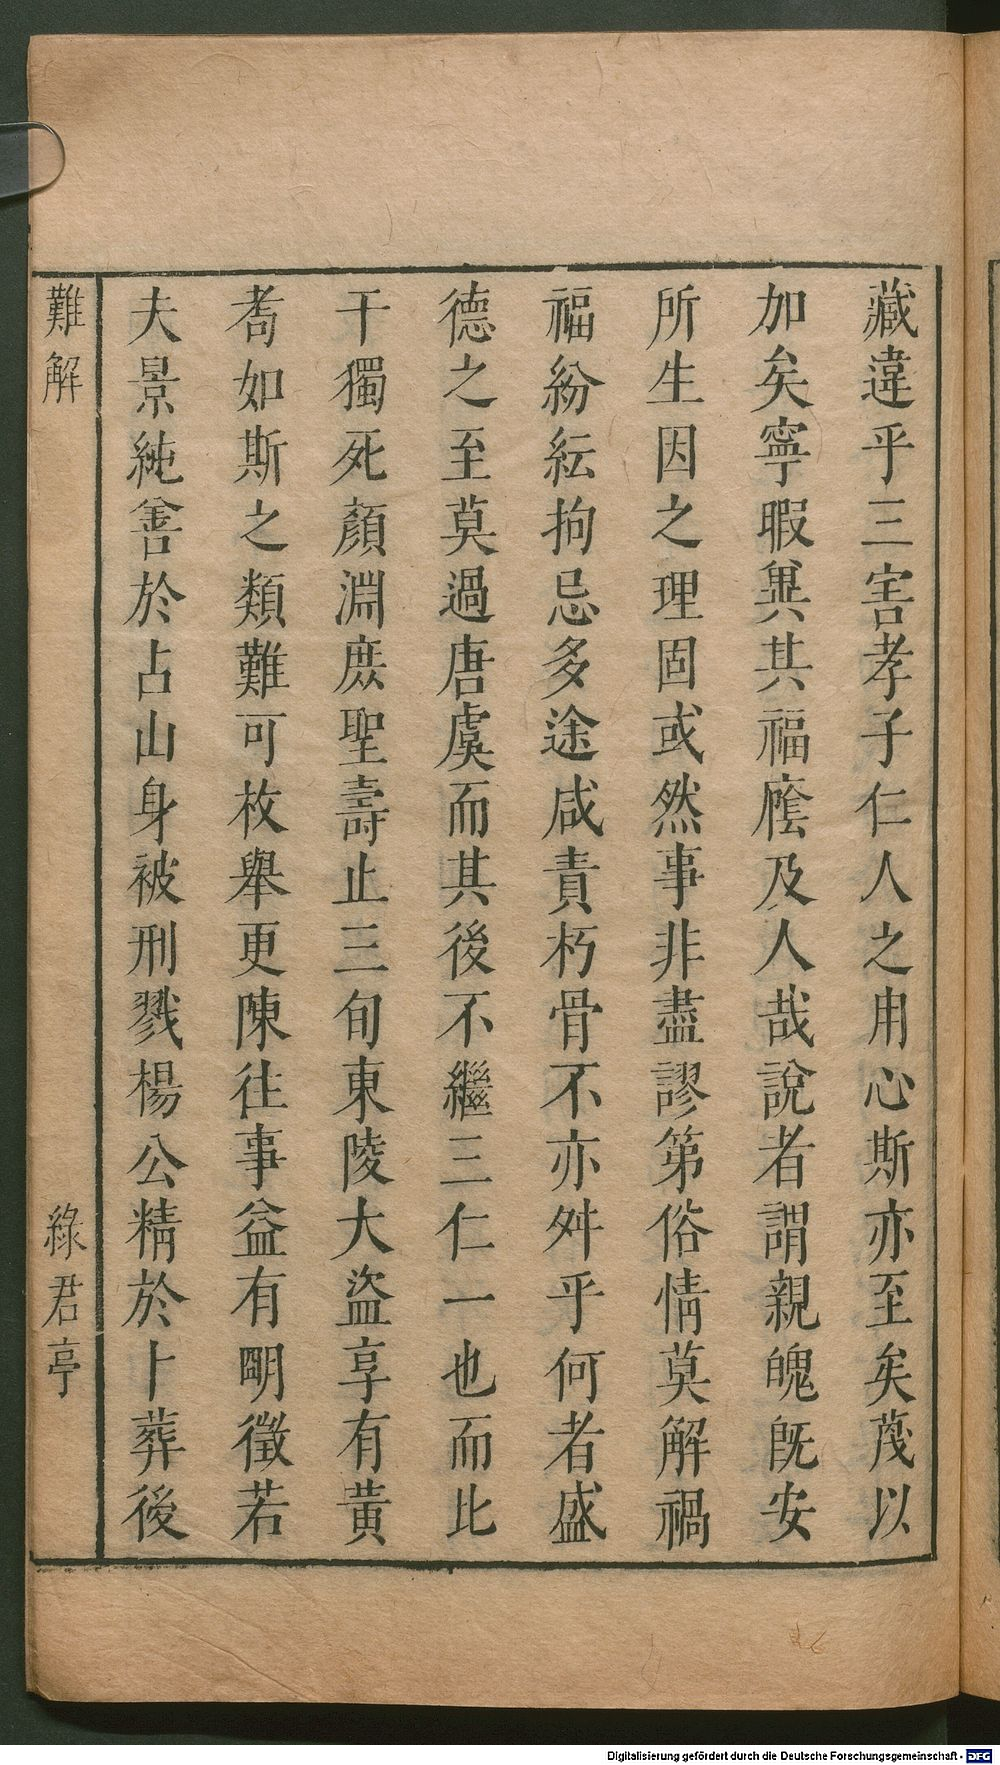 藏違乎三害孝子仁人之用心斯亦至矣蔑以
加矣寧暇兾其福廕及人哉說者謂親魄旣安
所生因之理固或然事非盡謬第俗情莫解禍
福紛紜拘忌多途咸責朽骨不亦舛乎何者盛
德之至莫過唐虞而其後不繼三仁一也而比
干獨死顏淵庶聖壽止三旬東陵大盜享有黃
耈如斯之類難可枚舉更陳徃事益有明徵若
夫景純善於占山身被刑戮楊公精於卜葬後
難解
綠君亭
Digitalisierung gefördert durch die Deutsche Forschungsgemeinschaft - DFG